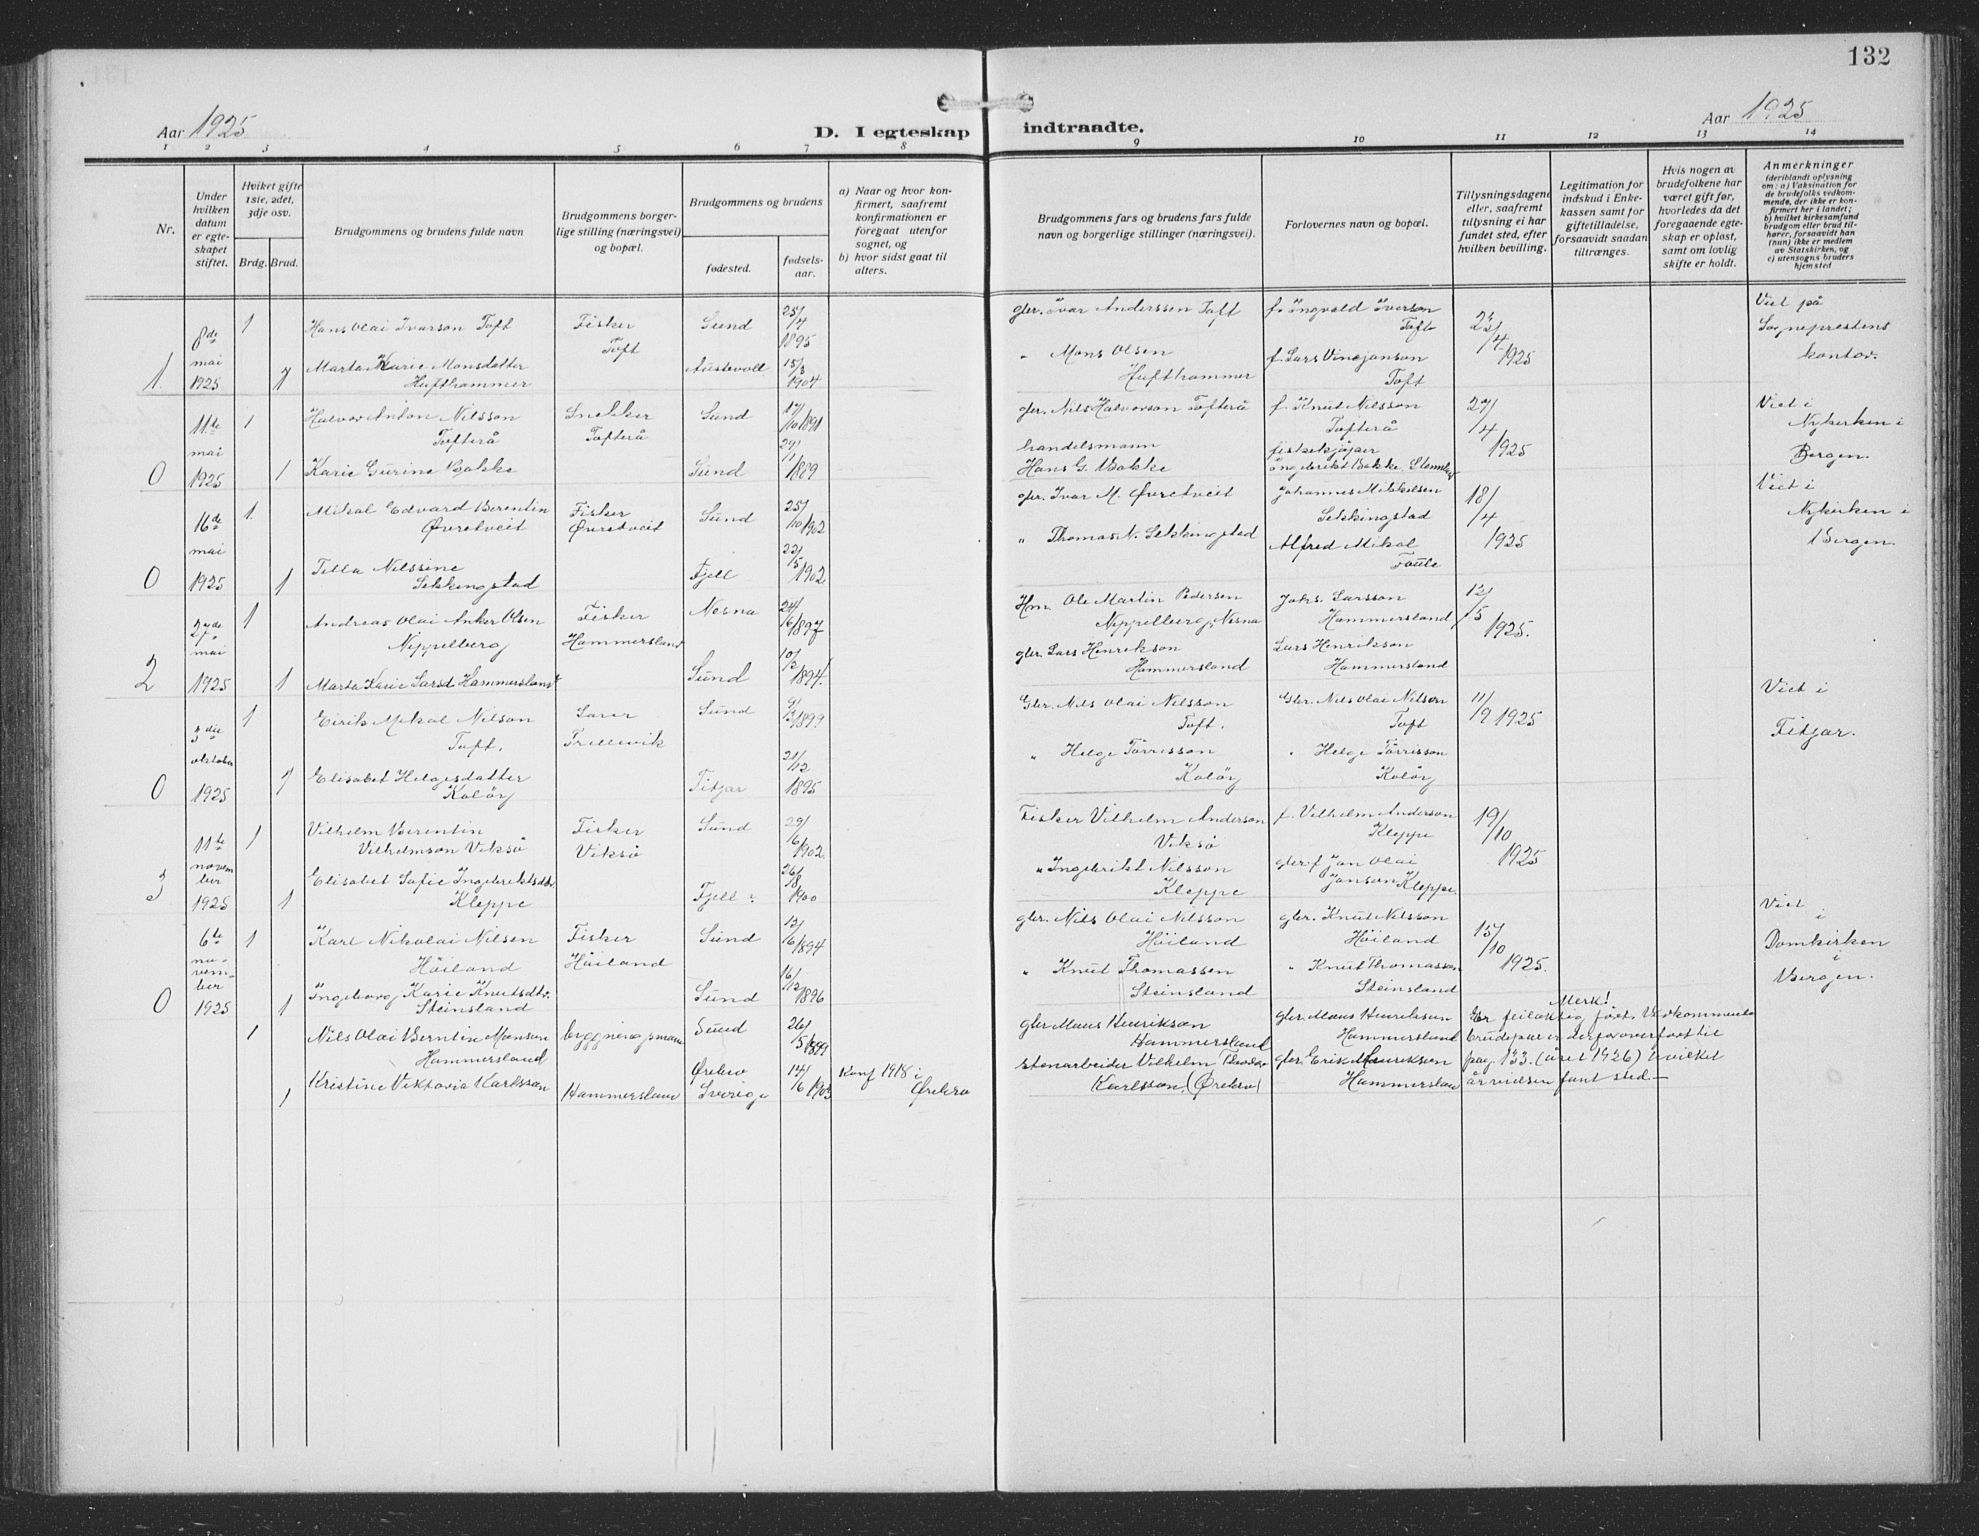 132
Aar 1925
D. I egteskap
indtraadte.
Aar 1925
1 2 3 4 5 6 7 8 9 10 11 12 13 14
Nr.
Under
hvilken
datum
er egte-
skapet
stiftet.
Hviket gifte
1ste, 2det,
3dje osv.
Brdg. Brud.
Brudgommens og brudens fulde navn
Brudgommens borger-
lige stilling (næringsvei)
og bopæl.
Brudgommens og brudens
fødested.
fødsels-
aar.
a) Naar og hvor kon-
firmert, saafremt
konfirmationen er
foregaat utenfor
sognet, og
b) hvor sidst gaat til
alters.
Brudgommens fars og brudens fars fulde
navn og borgerlige stillinger (næringsvei).
Forlovernes navn og bopæl.
Tillysningsdagene
eller, saafremt
tillysning ei har
fundet sted, efter
hvilken bevilling.
Legitimation for
indskud i Enke-
kassen samt for
giftetilladelse,
forsaavidt saadan
tiltrænges.
Hvis nogen av
brudefolkene har
været gift før,
hvorledes da det
foregaaende egte-
skap er opløst,
samt om lovlig
skifte er holdt.
Anmerkninger
(deriblandt oplysning
om: a) Vaksination for
de brudefolks vedkom-
mende, der ikke er kon-
firmert her i landet;
b) hvilket kirkesamfund
brudgom eller brud til-
hører, forsaavidt han
(hun) ikke er medlem
av Statskirken, og
c) utensogns bruders
hjemsted
1
8de
mai
1925
1
Hans Olai Ivarson Toft
Fisker
Toft
Sund
25/4
1895
gbr. Ivar Anderssen Toft
f. Ingvald Iverson
Toft
1925
Viet på
Sogneprestens
kontor.
1
Marta Karie Monsdatter
Hufthammer
Austevoll
15/3
1904
" Mons Olsen
Hufthammer
f. Lars Vingjanson
Toft
0
11te
mai
1925
1
Halvor Anton Nilsson
Tofterå
Snekker
Tofterå
Sund
17/10 1891
gbr. Nils Halvorson Tofterå
f. Knut Nilsson
Tofterå
27/4
1925
Viet i
Nykirken i
Bergen.
1
Karie Gurine Bakke
Sund
1889
handelsmann
Hans G. Bakke
fiskekjøper
Ingebrikt Bakke
0
16de
mai
1925
1
Mikal Edvard Berentin
Øvretveit
Fisker
Øvretveit
Sund
25/10 1902
gbr. Ivar M. Øvretveit
Johannes Mikkelsen
Sekkingstad
18/4
1925
Viet i
Nykirken i
Bergen.
1
Tilla Nilssine
Sekkingstad
Fjell
22/5 1902
" Thomas N. Sekkingstad
Alfred Mikal
2
mai
1925
1
Andreas Olai Anker Olsen
Nippelberg
Fisker
Hammersland
Nesna
24/6 1897
Hm. Ole Martin Pedersen
Nippelberg, Nesna
Johs. Larsson
Hammersland
12/5
1925.
1
Marta Karie Larsd Hammersland
Sund
10/3 1894.
gbr. Lars Henrikson
Hammersland
Lars Henrikson
Hammersland
0
3die
oktober
1925
1
Eirik Mikal Nilson
Toft,
Trellevik
Sund
1899
Gbr. Nils Olai Nilsson
Toft.
Gbr. Nils Olai Nilson
Toft
11/9 1925
Viet i
Fitjar.
1
Elisabet Helgesdatter
Koløy
Fitjar
21/12
1895
" Helge Tørrisson
Koløy
" Helge Tørrisson
Koløy
3
11te
novem
ber
1925
1
Vilhelm Berentin
Vilhelmson Viksø
Fisker
Viksø
Sund
29/6
1902.
Fisker Vilhelm Anderson
Viksø
f. Vilhelm Anderson
Kleppe
19/10
1925
1
Elisabet Sofie Ingebriktsdtr.
Kleppe
Fjell
26/8
1900
" Ingebrikt Nilsson
Kleppe
gbr. f. Jan Olai
Janson Kleppe.
0
6te
no-
vem-
ber
1925
1
Karl Nikolai Nilsen
Høiland
Fisker
Høiland
Sund
12/6 1894
gbr. Nils Olai Nilsson
Høiland
gbr. Knut Nilsson
Høiland
15/10
1925.
Viet
i
Domkirken
i
Bergen.
1
Ingeborg Karie Knutsdtr.
Steinsland
Sund
16/12 1896
" Knut Thomassen
Steinsland
" Knut Thomassen
Steinsland
1
Nils Olai Berntin Monsen
Hammersland
byggningsman
Sund
26/5 1899
gbr Mons Henrikson
Hammersland
gbr. Mons Henrikson
Hammersland
Merk!
Er feilaktig ført. Vedkommende
brudepar er derfor overført til
pag. 133. (året 1926) hvilket
år vielsen fant sted.—
1
Kristine Viktoria Karlsson
Hammersland
Ørebro
Sverige
14/6 1903
Konf 1918 i
Ørebro
stenarbeider Vilhelm Theodor
Karlsson (Ørebro)
gbr. Erik Henriksen
Hammersland